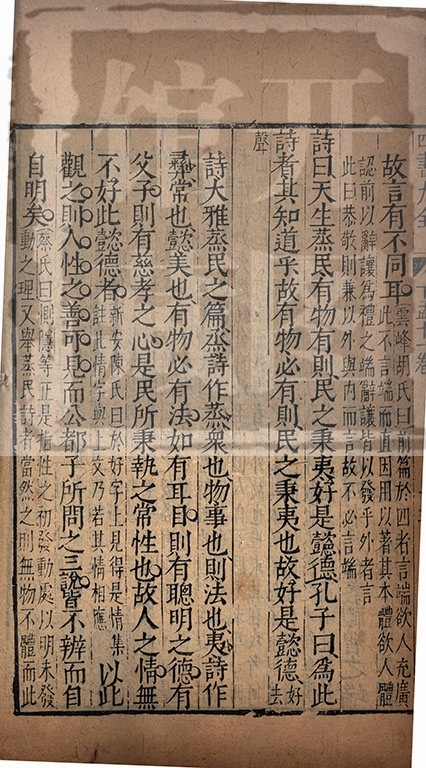 故言有不同耳雲峰胡氏曰前篇於四者言端欲人充廣此不言端而直因用以著其本體欲人體
認前以辭讓為禮之端辭讓皆以發乎外者言此曰恭敬則兼以外與內而言故不必言端
詩曰天生蒸民有物有則民之秉夷好是懿德孔子曰為此
詩者其知道乎故有物必有則民之秉夷也故好是懿德好去
聲
詩大雅蒸民之篇蒸詩作烝衆也物事也則法也夷詩作
彝常也懿美也有物必有法如有耳目則有聰明之德有
父子則有慈孝之心是民所秉執之常性也故人之情無
不好此懿德者新安陳氏曰於好字上見得是情集註此情字與上文乃若其情相應以此
觀之則人性之善可見而公都子所問之三說皆不辨而自
自明矣蔡氏曰惻隱等正是指性之初發動處以明未發動之理又舉蒸民詩者當然之則無物不體而此